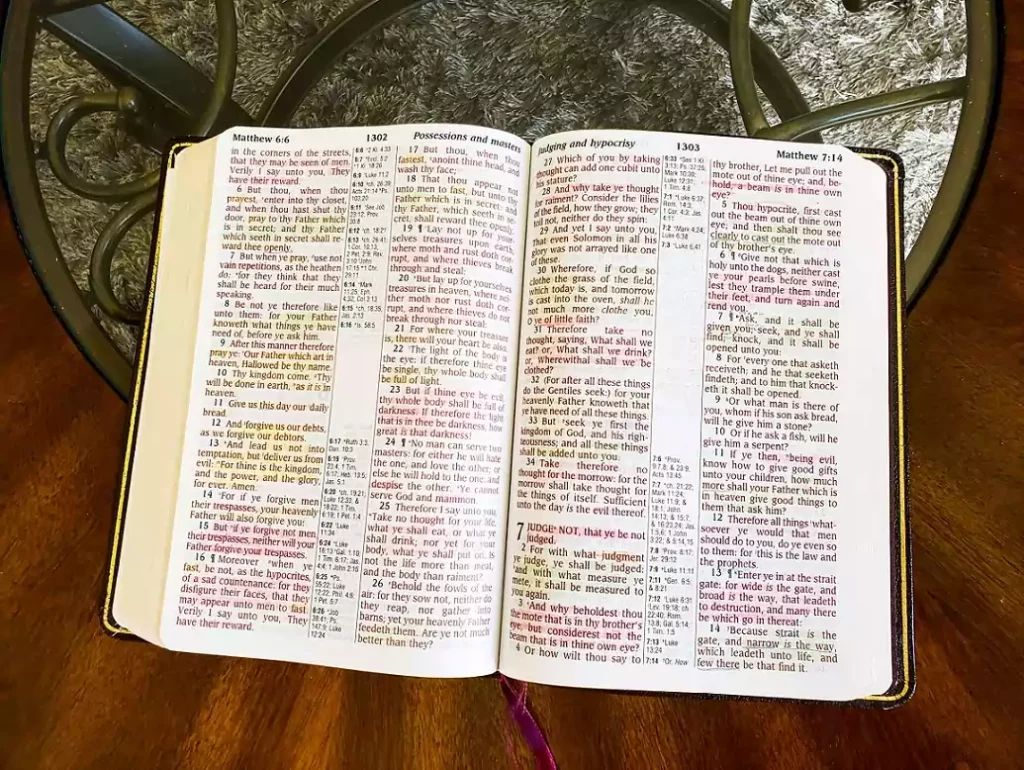 Matthew 6:6
1302
Possessions and masters
in the corners of the streets,
that they may be seen of men.
Verily I say unto you, They
have their reward.
6 But thou, when thou
prayest, enter into thy closet,
and when thou hast shut thy
door, pray to thy Father which
is in secret; and thy Father
which seeth in secret shall re-
ward thee openly.
7 But when ye pray, use not
vain repetitions, as the heathen
do: for they think that they
shall be heard for their much
speaking.
8 Be not ye therefore like
unto them: for your Father
knoweth what things ye have
need of, before ye ask him.
9 After this manner therefore
pray ye: Our Father which art in
heaven, Hallowed be thy name.
10 Thy kingdom come. Thy
will be done in earth, as it is in
heaven.
11 Give us this day our daily
bread.
12 And forgive us our debts,
as we forgive our debtors.
13 And lead us not into
temptation, but deliver us from
evil: For thine is the kingdom,
and the power, and the glory,
for ever. Amen.
14 For if ye forgive men
their trespasses, your heavenly
Father will also forgive you:
15 But if ye forgive not men
their trespasses, neither will your
Father forgive your trespasses.
16 ¶ Moreover when ye
fast, be not, as the hypocrites,
of a sad countenance: for they
disfigure their faces, that they
may appear unto men to fast.
Verily I say unto you, They
have their reward.
17 But thou, when thou
fastest, anoint thine head, and
wash thy face;
18 That thou appear not
unto men to fast, but unto thy
Father which is in secret: and
thy Father, which seeth in se-
cret, shall reward thee openly.
19 ¶ Lay not up for your-
selves treasures upon earth,
where moth and rust doth cor-
rupt, and where thieves break
through and steal:
20 But lay up for yourselves
treasures in heaven, where nei-
ther moth nor rust doth cor-
rupt, and where thieves do not
break through nor steal:
21 For where your treasure
is, there will your heart be also.
22 The light of the body is
the eye: if therefore thine eye
be single, thy whole body shall
be full of light.
23 But if thine eye be evil,
thy whole body shall be full of
darkness. If therefore the light
that is in thee be darkness, how
great is that darkness!
24 ¶ No man can serve two
masters: for either he will hate
the one, and love the other; or
else he will hold to the one, and
despise the other. Ye cannot
serve God and mammon.
25 Therefore I say unto you,
Take no thought for your life,
what ye shall eat, or what ye
shall drink; nor yet for your
body, what ye shall put on. Is
not the life more than meat,
and the body than raiment?
26 Behold the fowls of the
air: for they sow not, neither do
they reap, nor gather into
barns; yet your heavenly Father
feedeth them. Are ye not much
better than they?
Judging and hypocrisy
1303
Matthew 7:14
27 Which of you by taking
thought can add one cubit unto
his stature?
28 And why take ye thought
for raiment? Consider the lilies
of the field, how they grow; they
toil not, neither do they spin:
29 And yet I say unto you,
That even Solomon in all his
glory was not arrayed like one
of these.
30 Wherefore, if God so
clothe the grass of the field,
which today is, and tomorrow
is cast into the oven, shall he
not much more clothe you,
O ye of little faith?
31 Therefore take no
thought, saying, What shall we
eat? or, What shall we drink?
or, Wherewithal shall we be
clothed?
32 (For after all these things
do the Gentiles seek:) for your
heavenly Father knoweth that
ye have need of all these things.
33 But seek ye first the
kingdom of God, and his righ-
teousness; and all these things
shall be added unto you.
34 Take therefore no
thought for the morrow: for the
morrow shall take thought for
the things of itself. Sufficient
unto the day is the evil thereof.
7 JUDGE NOT, that ye be not
judged.
2 For with what judgment
ye judge, ye shall be judged:
and with what measure ye
mete, it shall be measured to
you again.
3 And why beholdest thou
the mote that is in thy brother's
eye, but considerest not the
beam that is in thine own eye?
4 Or how wilt thou say to
thy brother, Let me pull out the
mote out of thine eye; and, be-
hold, a beam is in thine own
eye?
5 Thou hypocrite, first cast
out the beam out of thine own
eye; and then shalt thou see
clearly to cast out the mote out
of thy brother's eye.
6 ¶ Give not that which is
holy unto the dogs, neither cast
ye your pearls before swine,
lest they trample them under
their feet, and turn again and
rend you.
7 ¶ Ask, and it shall be
given you; seek, and ye shall
find; knock, and it shall be
opened unto you:
8 For every one that asketh
receiveth; and he that seeketh
findeth; and to him that knock-
eth it shall be opened.
9 Or what man is there of
you, whom if his son ask bread,
will he give him a stone?
10 Or if he ask a fish, will he
give him a serpent?
11 If ye then, being evil,
know how to give good gifts
unto your children, how much
more shall your Father which is
in heaven give good things to
them that ask him?
12 Therefore all things what-
soever ye would that men
should do to you, do ye even so
to them: for this is the law and
the prophets.
13 ¶ Enter ye in at the strait
gate: for wide is the gate, and
broad is the way, that leadeth
to destruction, and many there
be which go in thereat:
14 Because strait is the
gate, and narrow is the way,
which leadeth unto life, and
few there be that find it.